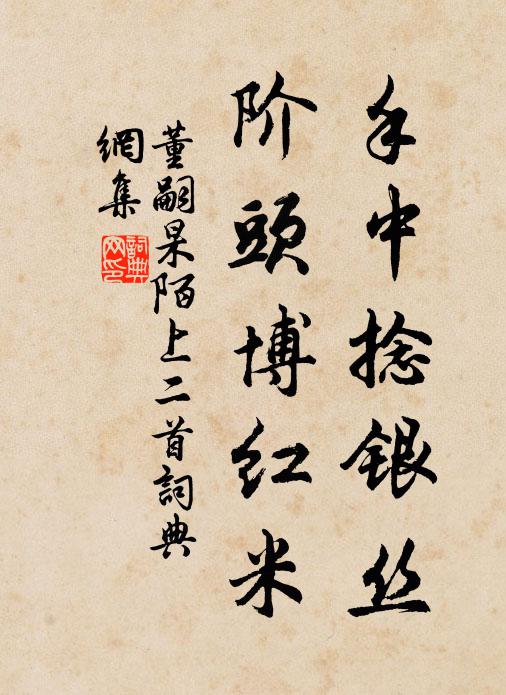 手中捻银丝
阶头博红米
董嗣杲陌上二首詞典
網集
詞典
网印